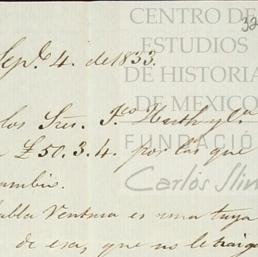 CENTRO DE
ESTUDIOS
DE HISTORIA
DE MEXICO
FUNDACIÓN
Carlos Slim
32
Sep.e 4. de 1833.
los Sres. Fco Huth y Ca
£50.3.4. por las que
cambio.
habla Ventura es una tuya
de esa, que no le traiga